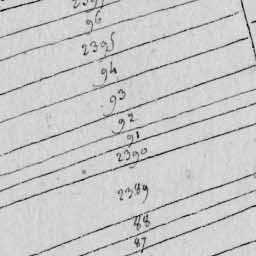 2397
96
2395
94
93
92
91
2390
2389
88
87